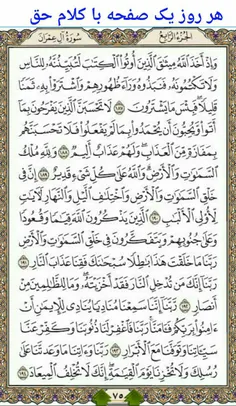 هر روز یک صفحه با کلام حق
الجزء الرابع
سورة آل عمران
وَإِذْ أَخَذَ اللَّهُ مِيثَاقَ الَّذِينَ أُوتُوا الْكِتَابَ لَتُبَيِّنُنَّهُ لِلنَّاسِ
وَلَا تَكْتُمُونَهُ فَنَبَذُوهُ وَرَاءَ ظُهُورِهِمْ وَاشْتَرَوْا بِهِ ثَمَنًا
قَلِيلًا فَبِئْسَ مَا يَشْتَرُونَ ١٨٧ لَا تَحْسَبَنَّ الَّذِينَ يَفْرَحُونَ بِمَا
أَتَوا وَّيُحِبُّونَ أَن يُحْمَدُوا بِمَا لَمْ يَفْعَلُوا فَلَا تَحْسَبَنَّهُم
بِمَفَازَةٍ مِّنَ الْعَذَابِ وَلَهُمْ عَذَابٌ أَلِيمٌ ١٨٨ وَلِلَّهِ مُلْكُ
السَّمَاوَاتِ وَالْأَرْضِ وَاللَّهُ عَلَىٰ كُلِّ شَيْءٍ قَدِيرٌ ١٨٩ إِنَّ فِي
خَلْقِ السَّمَاوَاتِ وَالْأَرْضِ وَاخْتِلَافِ اللَّيْلِ وَالنَّهَارِ لَآيَاتٍ
لِّأُولِي الْأَلْبَابِ ١٩٠ الَّذِينَ يَذْكُرُونَ اللَّهَ قِيَامًا وَقُعُودًا
وَعَلَىٰ جُنُوبِهِمْ وَيَتَفَكَّرُونَ فِي خَلْقِ السَّمَاوَاتِ وَالْأَرْضِ
رَبَّنَا مَا خَلَقْتَ هَٰذَا بَاطِلًا سُبْحَانَكَ فَقِنَا عَذَابَ النَّارِ ١٩١
رَبَّنَا إِنَّكَ مَن تُدْخِلِ النَّارَ فَقَدْ أَخْزَيْتَهُ وَمَا لِلظَّالِمِينَ مِنْ
أَنصَارٍ ١٩٢ رَّبَّنَا إِنَّنَا سَمِعْنَا مُنَادِيًا يُنَادِي لِلْإِيمَانِ أَنْ
آمِنُوا بِرَبِّكُمْ فَآمَنَّا رَبَّنَا فَاغْفِرْ لَنَا ذُنُوبَنَا وَكَفِّرْ عَنَّا
سَيِّئَاتِنَا وَتَوَفَّنَا مَعَ الْأَبْرَارِ ١٩٣ رَبَّنَا وَآتِنَا مَا وَعَدتَّنَا عَلَىٰ
رُسُلِكَ وَلَا تُخْزِنَا يَوْمَ الْقِيَامَةِ إِنَّكَ لَا تُخْلِفُ الْمِيعَادَ ١٩٤
٧٥